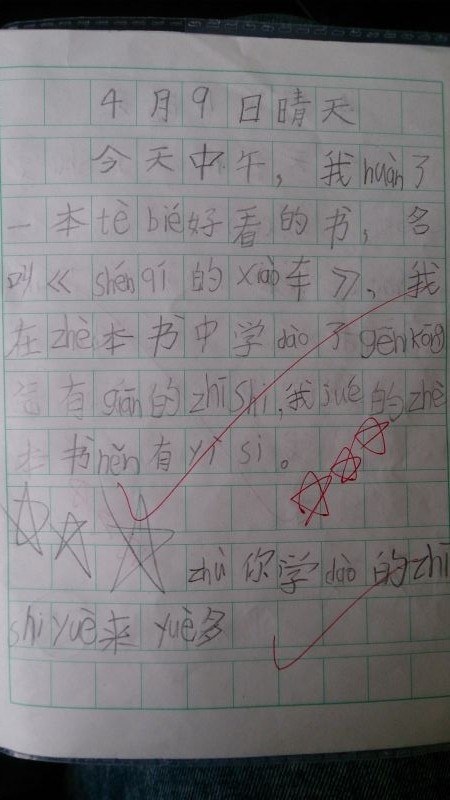 4月9日晴天
今天中午，我huàn了
一本tè bié好看的书，名
叫《shén qí的xiǎo车》，我
在zhè本书中学dào了gēn kōng
有guān的zhī shi，我jué的zhè
本书hěn有yì si。
zhù你学dào的zhī
shi yuè来yuè多